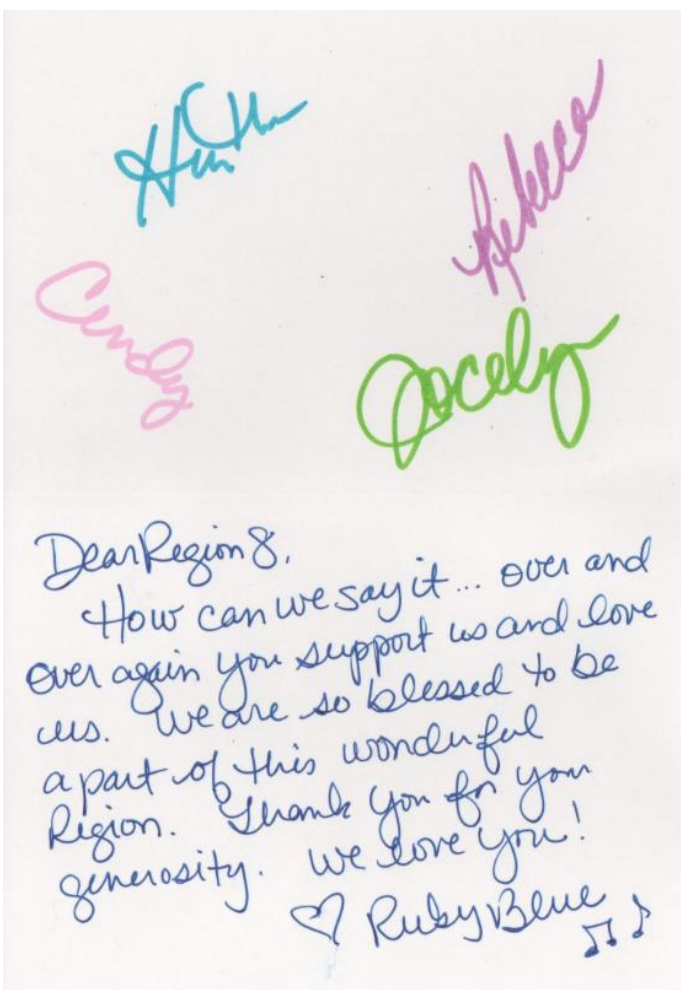 Rebecca
Cindy
Jocelyn
Dear Region 8,
How can we say it... over and
over again you support us and love
us. We are so blessed to be
a part of this wonderful
Region. Thank you for your
generosity. We love you!
♡ Ruby Blue